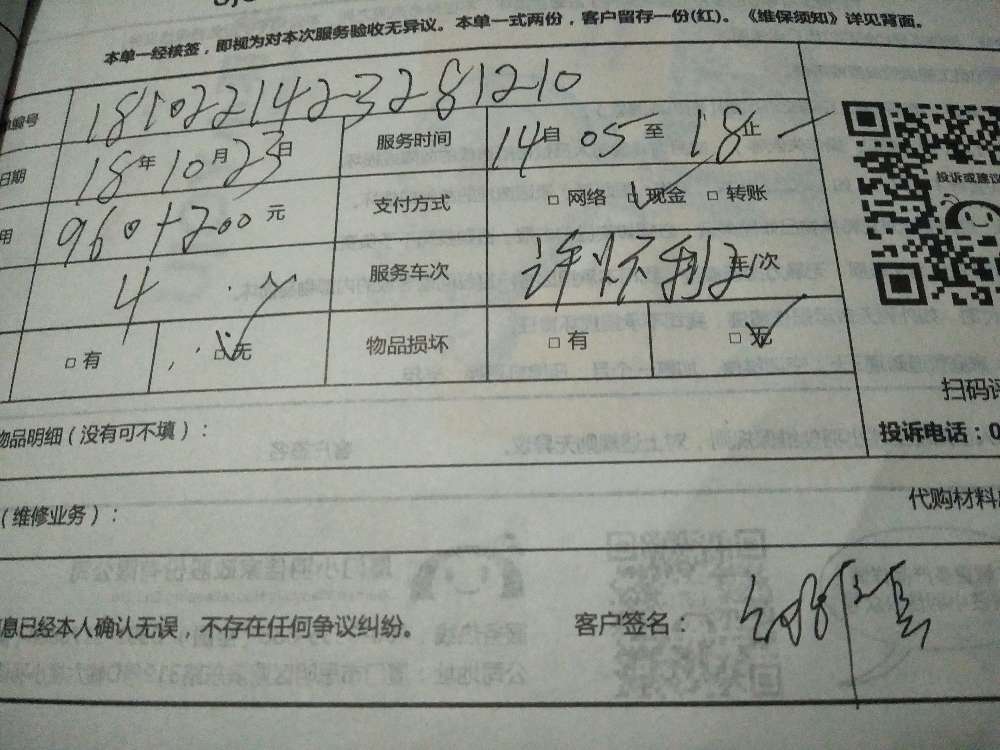 本单一经核签，即视为对本次服务验收无异议。本单一式两份，客户留存一份(红)。《维保须知》详见背面。
编号 181022142328 1210
日期 18年10月23日 服务时间 14自05至18止
用 960+200元 支付方式 □网络 □现金 □转账
4 服务车次 车/次
□有 □无 物品损坏 □有 □无
投诉或建议
扫码评
物品明细（没有可不填）：
投诉电话：0
（维修业务）：
代购材料
息已经本人确认无误，不存在任何争议纠纷。
客户签名：